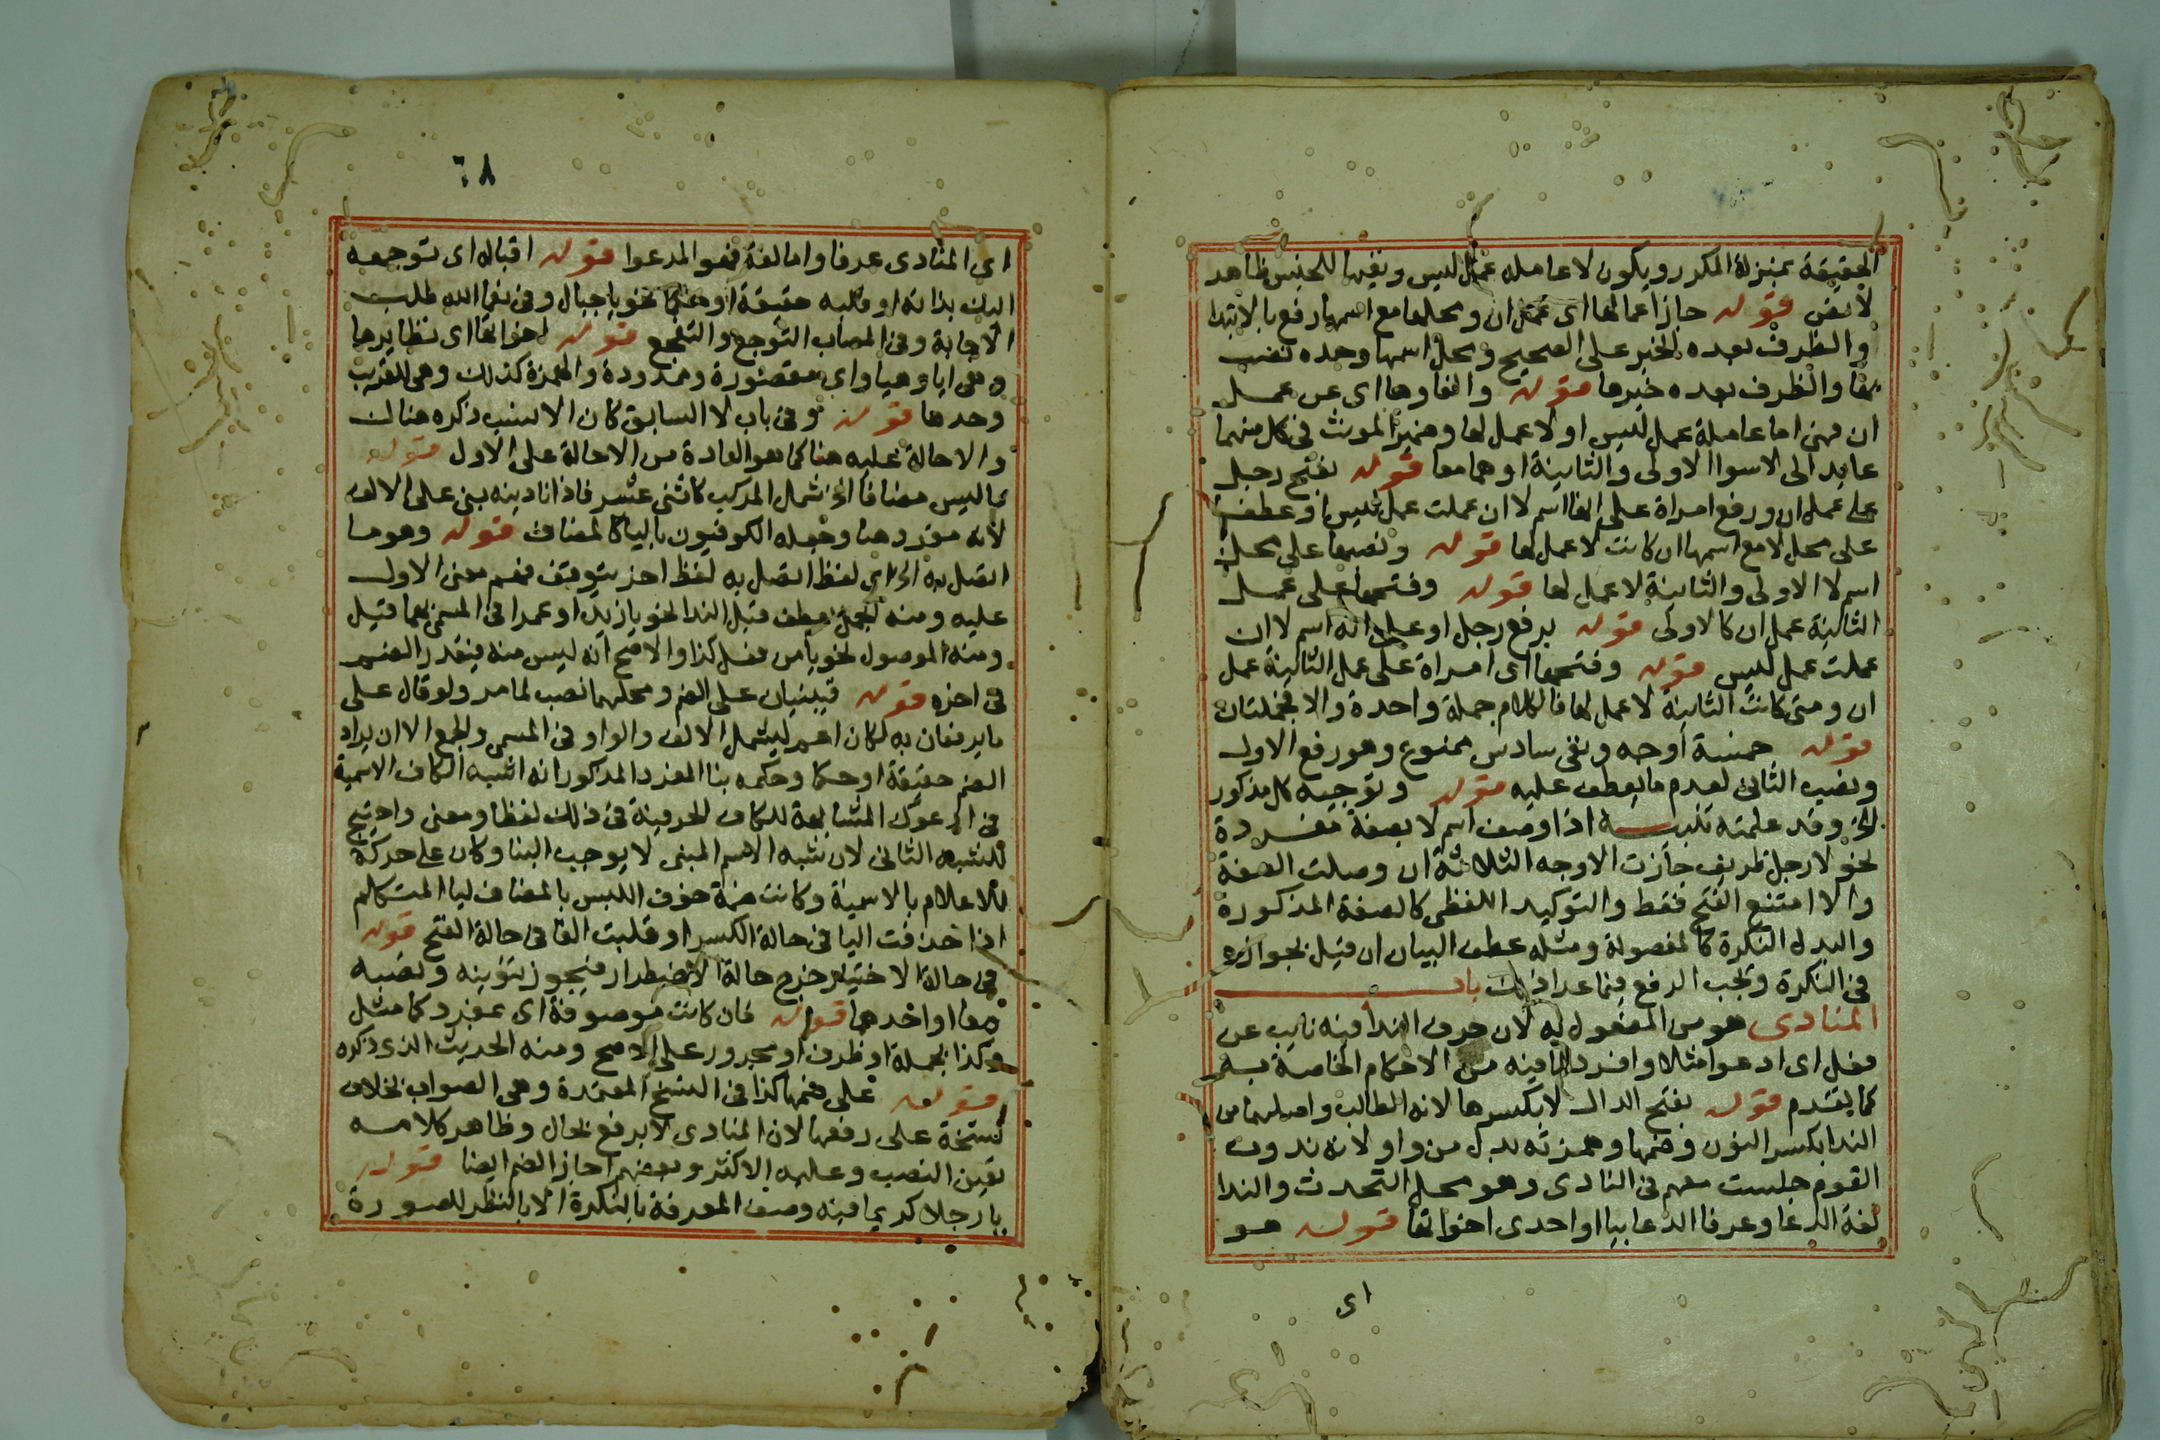 الحقيقة بمنزلة المكرر ويكون لا عامله عمل ليس ونفيها للجنس ظاهر
لا نص قوله جاز اعمالها اى عمل ان ومحلها مع اسمها رفع بالابتدا
والظرف بعده الخبر على الصحيح ومحل اسمها وحده نصب
بها والظرف بعده خبرها قوله والغاوها اى عن عمل
ان فهى اما عاملة عمل ليس او لا عمل لها وضمير المونث فى كل منهما
عايد الى لا سوا الاولى والثانية او هما معا قوله بفتح رجل
على عمل ان ورفع امراة على انها اسم لا ان عملت عمل ليس او عطفا
على محل لا مع اسمها ان كانت لا عمل لها قوله ونصبها على محل
اسم لا الاولى والثانية لا عمل لها قوله وفتحها على عمل
الثانية عمل ان كالاولى قوله برفع رجل او على انه اسم لا ان
عملت عمل ليس قوله وفتحها اى امراة على عمل الثانية عمل
ان ومتى كانت الثانية لا عمل لها فالكلام جملة واحدة والا فجملتان
قوله خمسة اوجه وبقى سادس ممنوع وهو رفع الاول
ونصب الثانى لعدم ما يعطف عليه قوله وتوجيه كل مذكور
الخ وقد علمته تنبيه اذا وصف اسم لا بصفة مفردة
نحو لا رجل ظريف جازت الاوجه الثلاثة ان وصلت الصفة
والا امتنع الفتح فقط والتوكيد اللفظى كالصفة المذكورة
والبدل النكرة كالمفصولة ومثله عطف البيان ان قيل بجوازه
فى النكرة ويجب الرفع فيما عدا ذلك باب
المنادى هو من المفعول به لان حرف الندا فيه نايب عن
فعل اى ادعوا مثلا وافرد لما فيه من الاحكام الخاصة به
كما يقدم قوله بفتح الدال لا بكسرها لانه الطالب واصلهما من
الندا بكسر النون وضمها وهمزته بدل من واو لانه ندوت
القوم جلست معهم فى النادى وهو محل التحدث والندا
لغة الدعا وعرفا الدعا بيا او احدى اخواتها قوله هو
اى
٦٨
اى المنادى عرفا واما لغة فهو المدعوا قوله اقباله اى توجهه
اليك بذاته او قلبه حقيقة او حكما نحو يا جبال وفى نحو يا الله طلب
الاجابة وفى المصاب التوجع والتفجع قوله اخواتها اى نظايرها
وهى ايا وهيا واى مقصورة وممدودة والهمزة كذلك وهى للقريب
وحدها قوله وفى باب لا السابق كان الانسب ذكره هناك
والاحالة عليه هنا كما هو العادة من الاحالة على الاول قوله
ما ليس مضافا الخ شمل المركب كاثنى عشر فاذا ناديته بنى على الالف
لانه مفرد هنا وجعله الكوفيون باليا كالمضاف قوله وهو ما
اتصل به الخ اى لفظ اتصل به لفظ اخر يتوقف فهم معنى الاول
عليه ومنه عطف قبل الندا نحو يا زيدا وعمرا فى المسمى بهما قيل
ومنه الموصول نحو يا من فعل كذا والاصح انه ليس منه فيقدر الضم
فى اخره قوله فيبنيان على الضم ومحلهما نصب لما مر ولو قال على
ما يرفعان به لكان اعم ليشمل الالف والواو فى المسمى والجمع الا ان يراد
الضم حقيقة او حكما وحكمه بنا المفرد المذكور انه اشبه الكاف الاسمية
فى ادعوك المشابهة للكاف الحرفية فى ذلك لفظا ومعنى واحتيج
للشبه الثانى لان شبه الاسم المبنى لا يوجب البنا وكان على حركة
للاعلام بالاسمية وكانت ضمة خوف اللبس بالمضاف ليا المتكلم
اذا حذفت اليا فى حالة الكسر او قلبت الفا فى حالة الفتح قوله
فى حالة الاختيار خرج حالة الاضطرار فيجوز تنوينه ونصبه
معا او احدهما قوله فان كانت موصوفة اى بمفرد كما مثل
وكذا بجملة او ظرف او مجرور على الاصح ومنه الحديث الذى ذكره
قوله على ضمها كذا فى النسخ المعتمدة وهى الصواب بخلاف
نسخة على رفعها لان المنادى لا يرفع بحال وظاهر كلامه
تعين النصب وعليه الاكثر وبعضهم اجاز الضم ايضا قوله
يا رجلا كريما فيه وصف المعرفة بالنكرة الا بالنظر للصورة